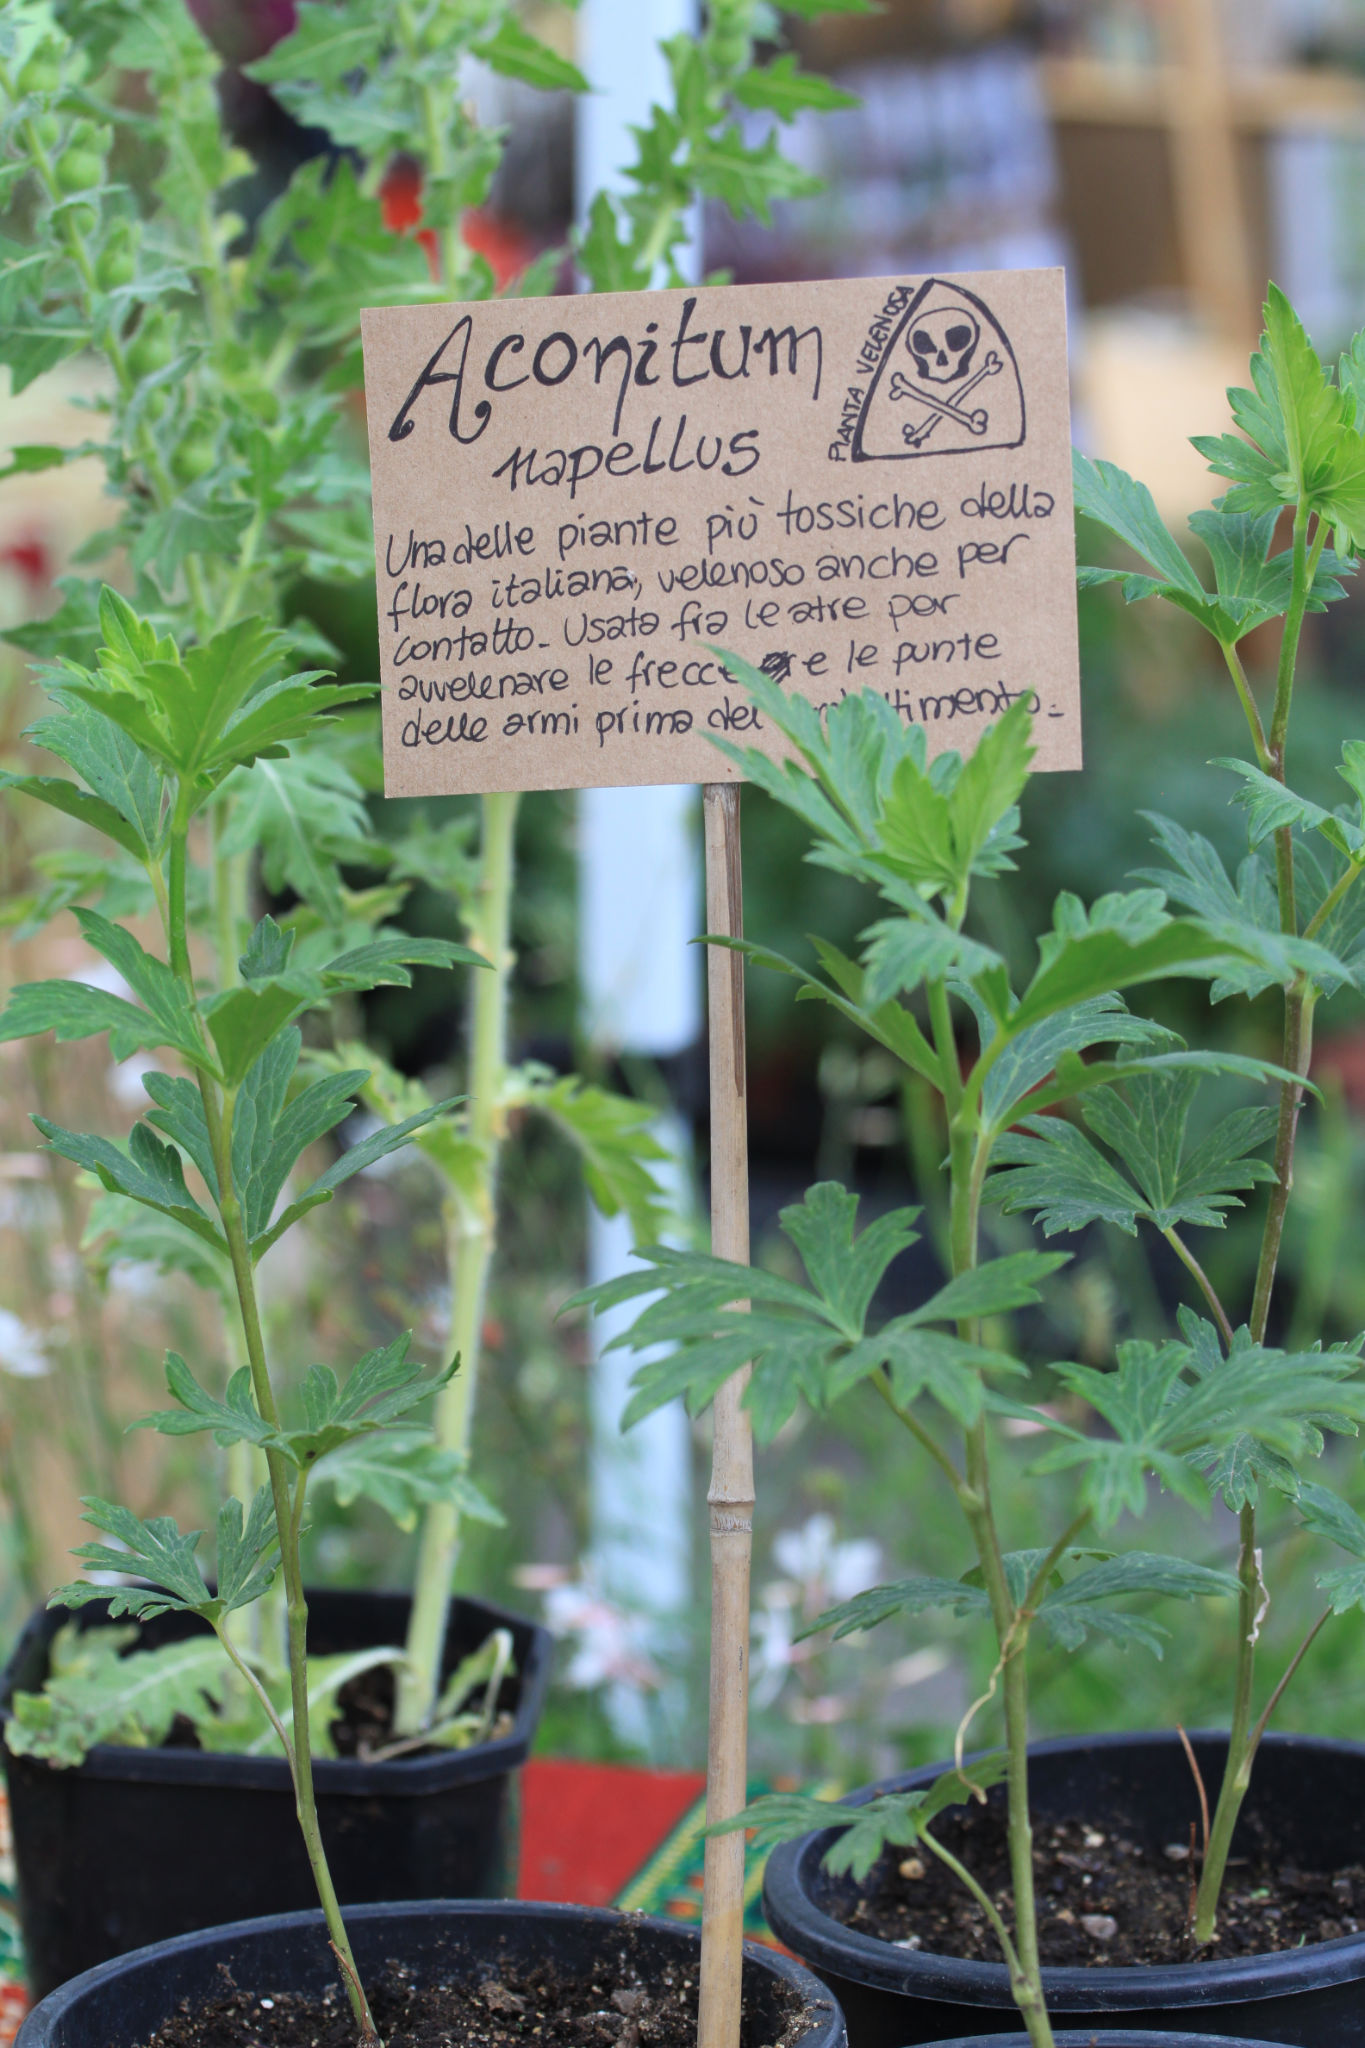 Aconitum
napellus
PIANTA VELENOSA
Una delle piante più tossiche della
flora italiana, velenoso anche per
contatto. Usata fra le atre per
avvelenare le frecce e le punte
delle armi prima del